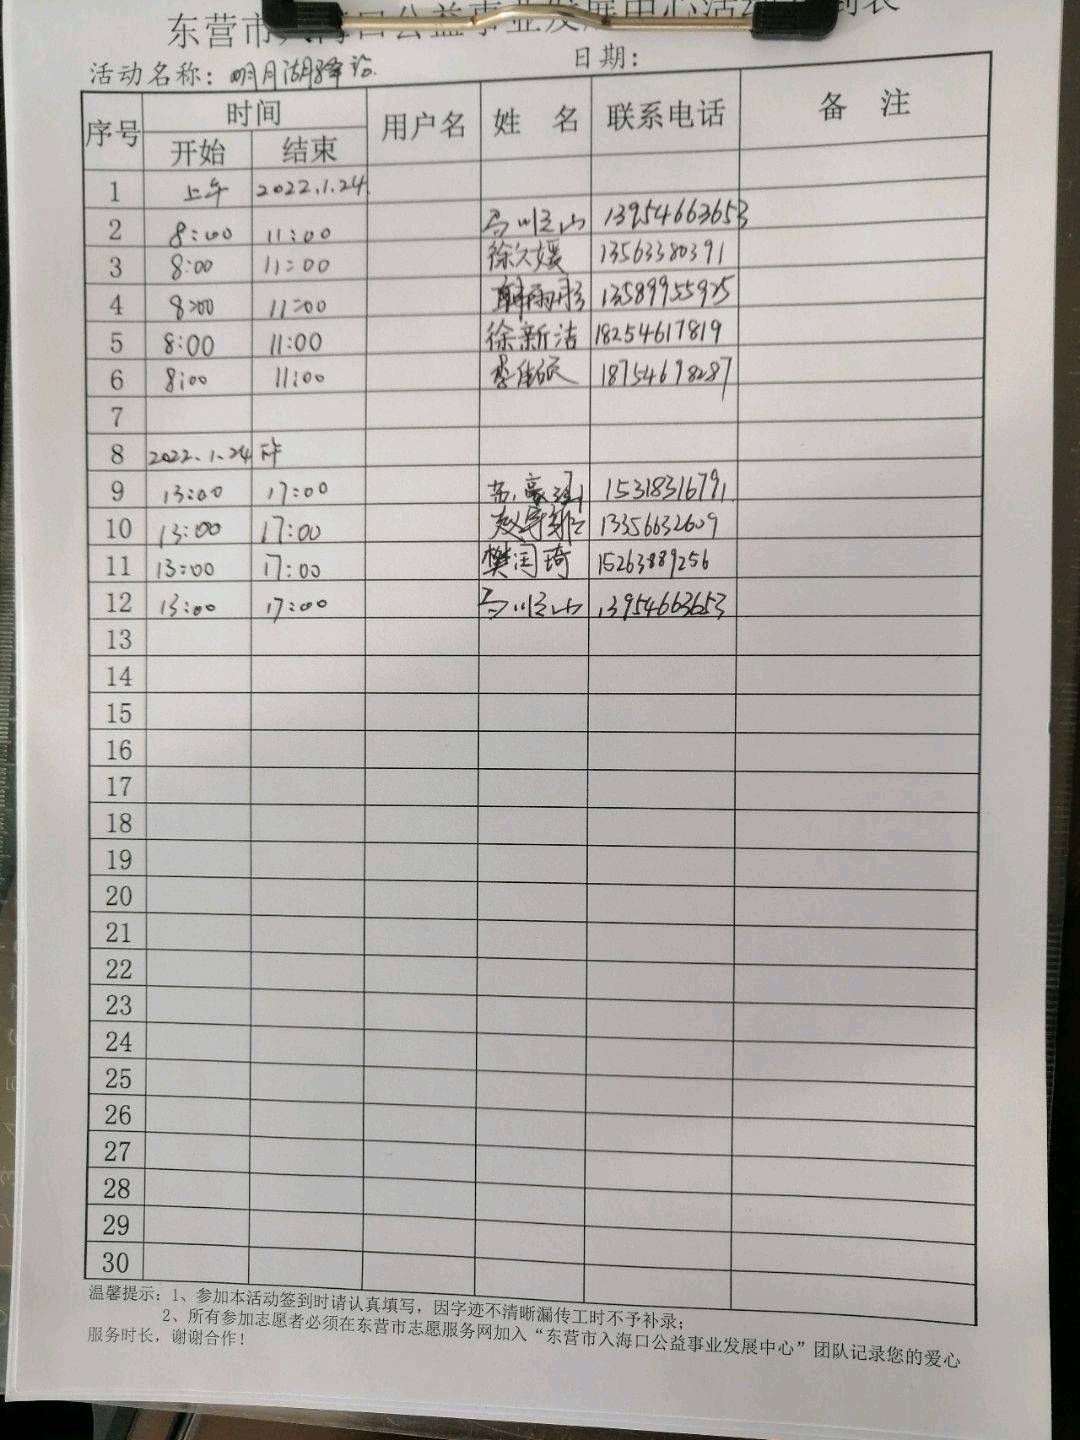 东营市入海口公益事业发展中心活动签到表
活动名称：明月湖驿站 日期：
序号 时间 用户名 姓 名 联系电话 备 注
开始 结束
1 上午 2022.1.24
2 8:00 11:00 13954663653
3 8:00 11:00 徐久媛 13563380391
4 8:00 11:00 韩雨彤 13589955925
5 8:00 11:00 徐新洁 18254617819
6 8:00 11:00 18754698287
7
8 2022.1.24
9 13:00 17:00 15318316791
10 13:00 17:00 13356632609
11 13:00 17:00 樊闰琦 15263889256
12 13:00 17:00 13954663653
13
14
15
16
17
18
19
20
21
22
23
24
25
26
27
28
29
30
温馨提示：1、参加本活动签到时请认真填写，因字迹不清晰漏传工时不予补录；
2、所有参加志愿者必须在东营市志愿服务网加入“东营市入海口公益事业发展中心”团队记录您的爱心
服务时长，谢谢合作！